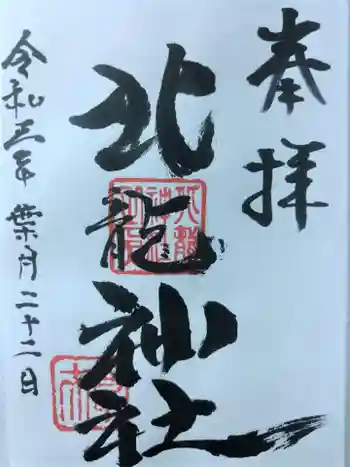 奉拝
北龍神社
令和三年 葉月二十二日